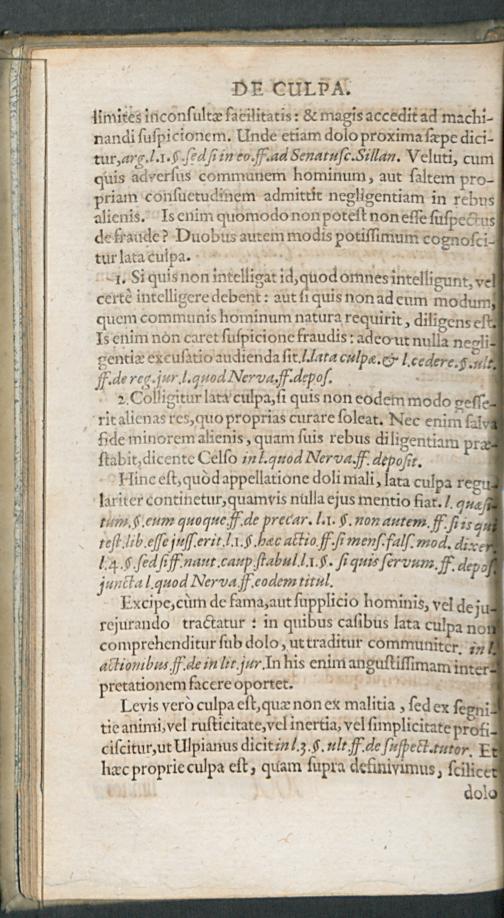 DE CULPA.
limites inconsultæ facilitatis: & magis accedit ad machi-
nandi suspicionem. Unde etiam dolo proxima sæpe dici-
tur, arg. l. 1. §. sed si in eo. ff. ad Senatusc. Sillan. Veluti, cum
quis adversus communem hominum, aut saltem pro-
priam consuetudinem admittit negligentiam in rebus
alienis. Is enim quomodo non potest non esse suspectus
de fraude? Duobus autem modis potissimum cognosci-
tur lata culpa.
1. Si quis non intelligat id, quod omnes intelligunt, vel
certè intelligere debent: aut si quis non ad eum modum,
quem communis hominum natura requirit, diligens est.
Is enim non caret suspicione fraudis: adeo ut nulla negli-
gentiæ excusatio audienda sit. l. lata culpæ. & l. cedere. §. ult.
ff. de reg. jur. l. quod Nerva. ff. depos.
2. Colligitur lata culpa, si quis non eodem modo gesse-
rit alienas res, quo proprias curare soleat. Nec enim salva
fide minorem alienis, quam suis rebus diligentiam præ-
stabit, dicente Celso in l. quod Nerva. ff. deposit.
Hinc est, quòd appellatione doli mali, lata culpa regu-
lariter continetur, quamvis nulla ejus mentio fiat. l. quæsi-
tum. §. eum quoque. ff. de precar. l. 1. §. non autem. ff. si is qui
test. lib. esse juss. erit. l. 1. §. hæc actio. ff. si mens. fals. mod. dixer.
l. 4. §. sed si ff. naut. caup stabul. l. 1. §. si quis servum. ff. depos.
juncta l. quod Nerva. ff. eodem titul.
Excipe, cùm de fama, aut supplicio hominis, vel de ju-
rejurando tractatur: in quibus casibus lata culpa non
comprehenditur sub dolo, ut traditur communiter. in l.
actionibus. ff. de in lit. jur. In his enim angustissimam inter-
pretationem facere oportet.
Levis verò culpa est, quæ non ex malitia, sed ex segni-
tie animi, vel rusticitate, vel inertia, vel simplicitate profi-
ciscitur, ut Ulpianus dicit in l. 3. §. ult. ff. de suspect. tutor. Et
hæc proprie culpa est, quam supra definivimus, scilicet
dolo